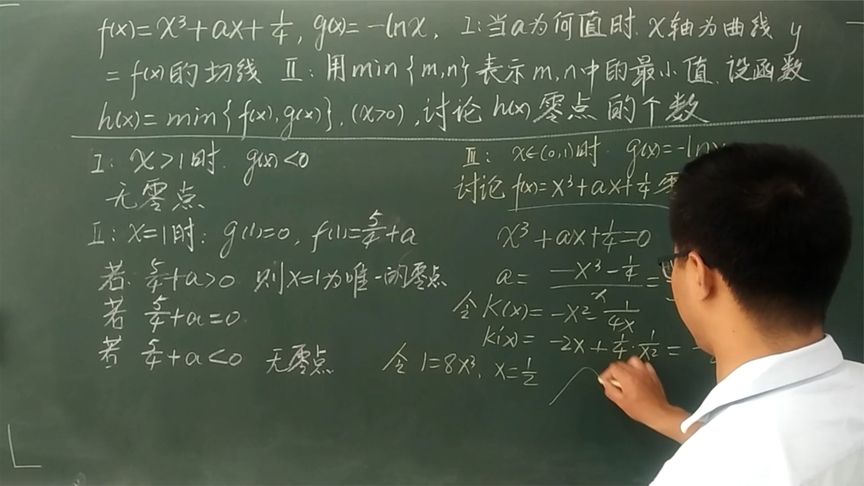 f(x)=x³+ax+1/4, g(x)=-lnx. I:当a为何值时.x轴为曲线 y
=f(x)的切线 II:用min{m,n}表示m,n中的最小值.设函数
h(x)=min{f(x),g(x)},(x>0),讨论h(x)零点的个数
I: x>1时. g(x)<0
无零点
II: x=1时: g(1)=0, f(1)=5/4+a
若 5/4+a>0 则x=1为唯一的零点
若 5/4+a=0
若 5/4+a<0 无零点
III: x∈(0,1)时. g(x)=-ln
讨论 f(x)=x³+ax+1/4 零
x³+ax+1/4=0
a= (-x³-1/4)/x =
令K(x)=-x²-1/(4x)
k'(x)= -2x+1/4·1/x² = -
令 1=8x³, x=1/2